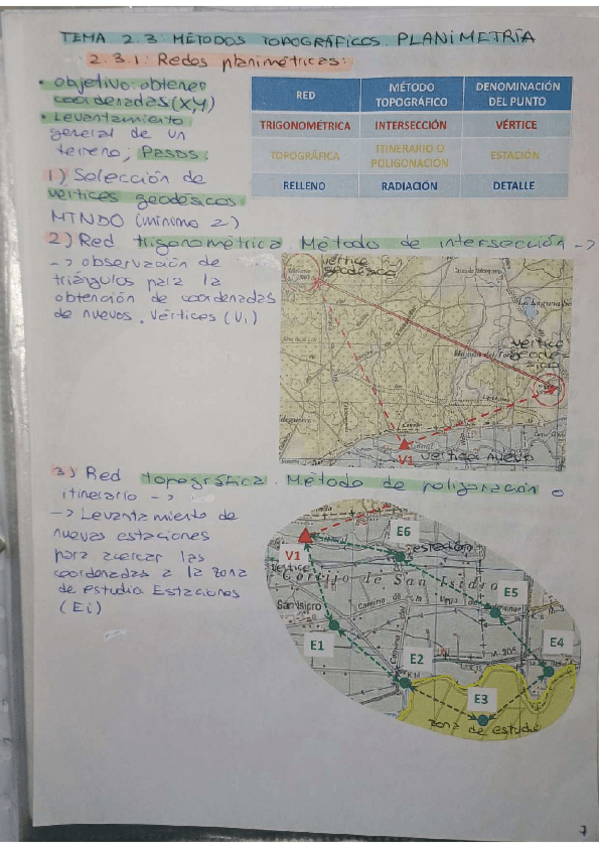 TEMA 2.3: MÉTODOS TOPOGRÁFICOS. PLANIMETRÍA
2.3.1: Redes planimétricas:
• objetivo: obtener
coordenadas (XY)
• Levantamiento
general de un
terreno; Pasos:
1) Selección de
vértices geodésicos.
(mínimo 2)
RED MÉTODO TOPOGRÁFICO DENOMINACIÓN DEL PUNTO
TRIGONOMÉTRICA INTERSECCIÓN VÉRTICE
TOPOGRÁFICA ITINERARIO O POLIGONACIÓN ESTACIÓN
RELLENO RADIACIÓN DETALLE
2) Red trigonométrica. Método de intersección ->
-> observación de
triángulos para la
obtención de coordenadas
de nuevos. Vértices (Vi)
vértice
geodésico
La Laguna
vértice
geodé
sico
V1 vértice nuevo
3) Red topográfica. Método de poligonación o
itinerario ->
-> Levantamiento de
nuevas estaciones
para acercar las
coordenadas a la zona
de estudio Estaciones
(Ei)
V1
vértice
E6
estación
Cortijo de San Isidro
San Isidro
E5
E1
E2
E4
E3
zona de estudio
7